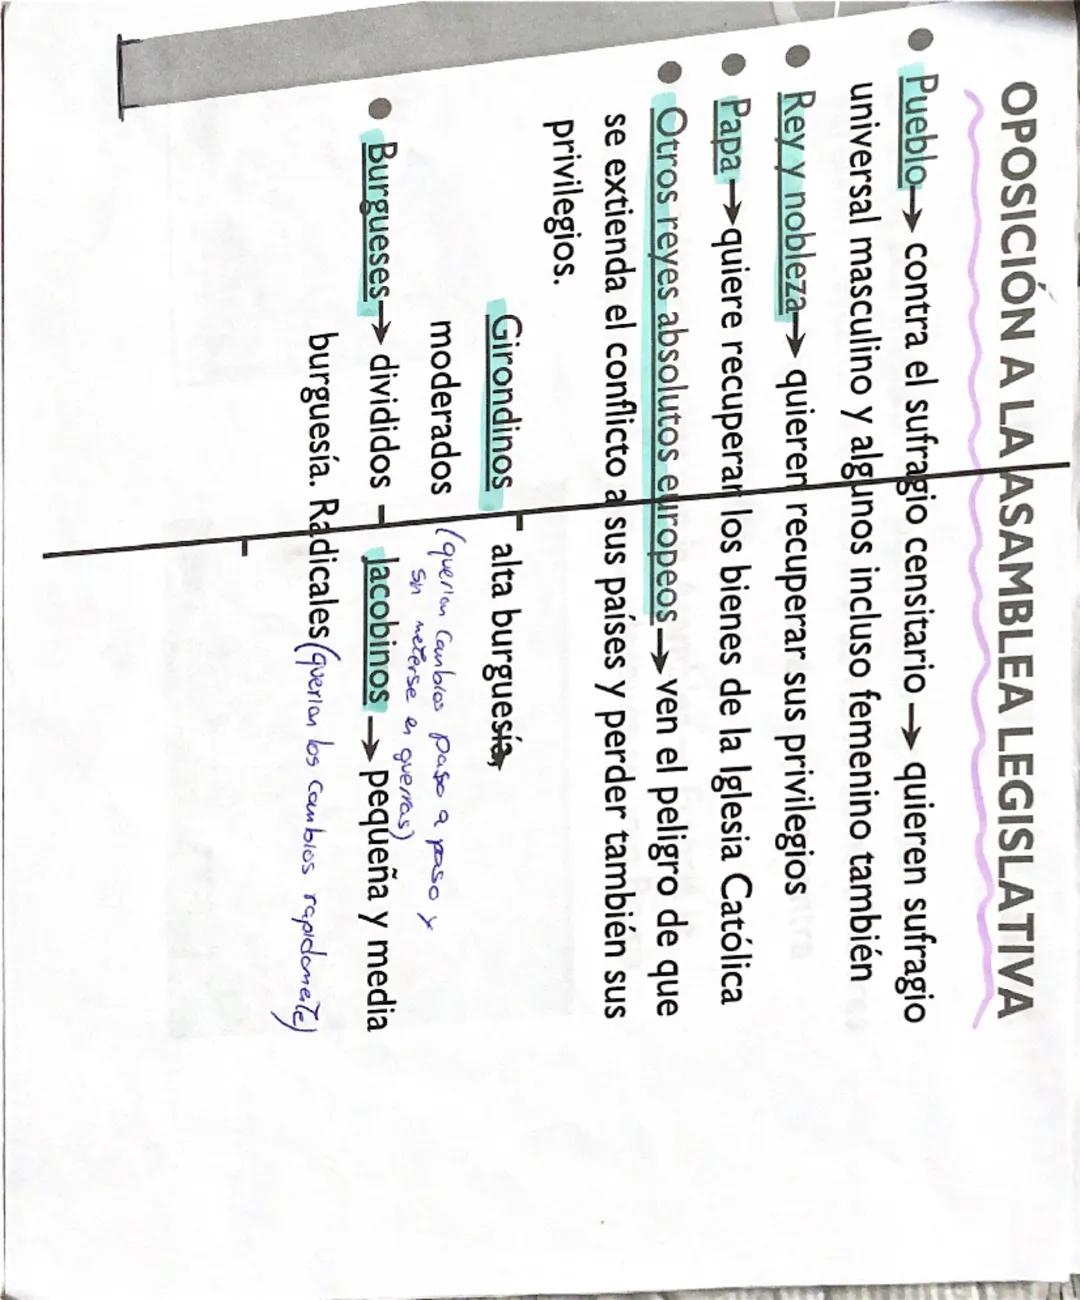 OPOSICIÓN A LA ASAMBLEA LEGISLATIVA
● Pueblo→ contra el sufragio censitario → quieren sufragio
universal masculino y algunos incluso femenino también
● Rey y nobleza→ quieren recuperar sus privilegios
● Papa→quiere recuperar los bienes de la Iglesia Católica
● Otros reyes absolutos europeos→ven el peligro de que
se extienda el conflicto a sus países y perder también sus
privilegios.
Girondinos - alta burguesía,
moderados (querian cambios paso a paso y
sin meterse en guerras)
● Burgueses→ divididos - Jacobinos → pequeña y media
burguesía. Radicales (querian los cambios rapidamente)